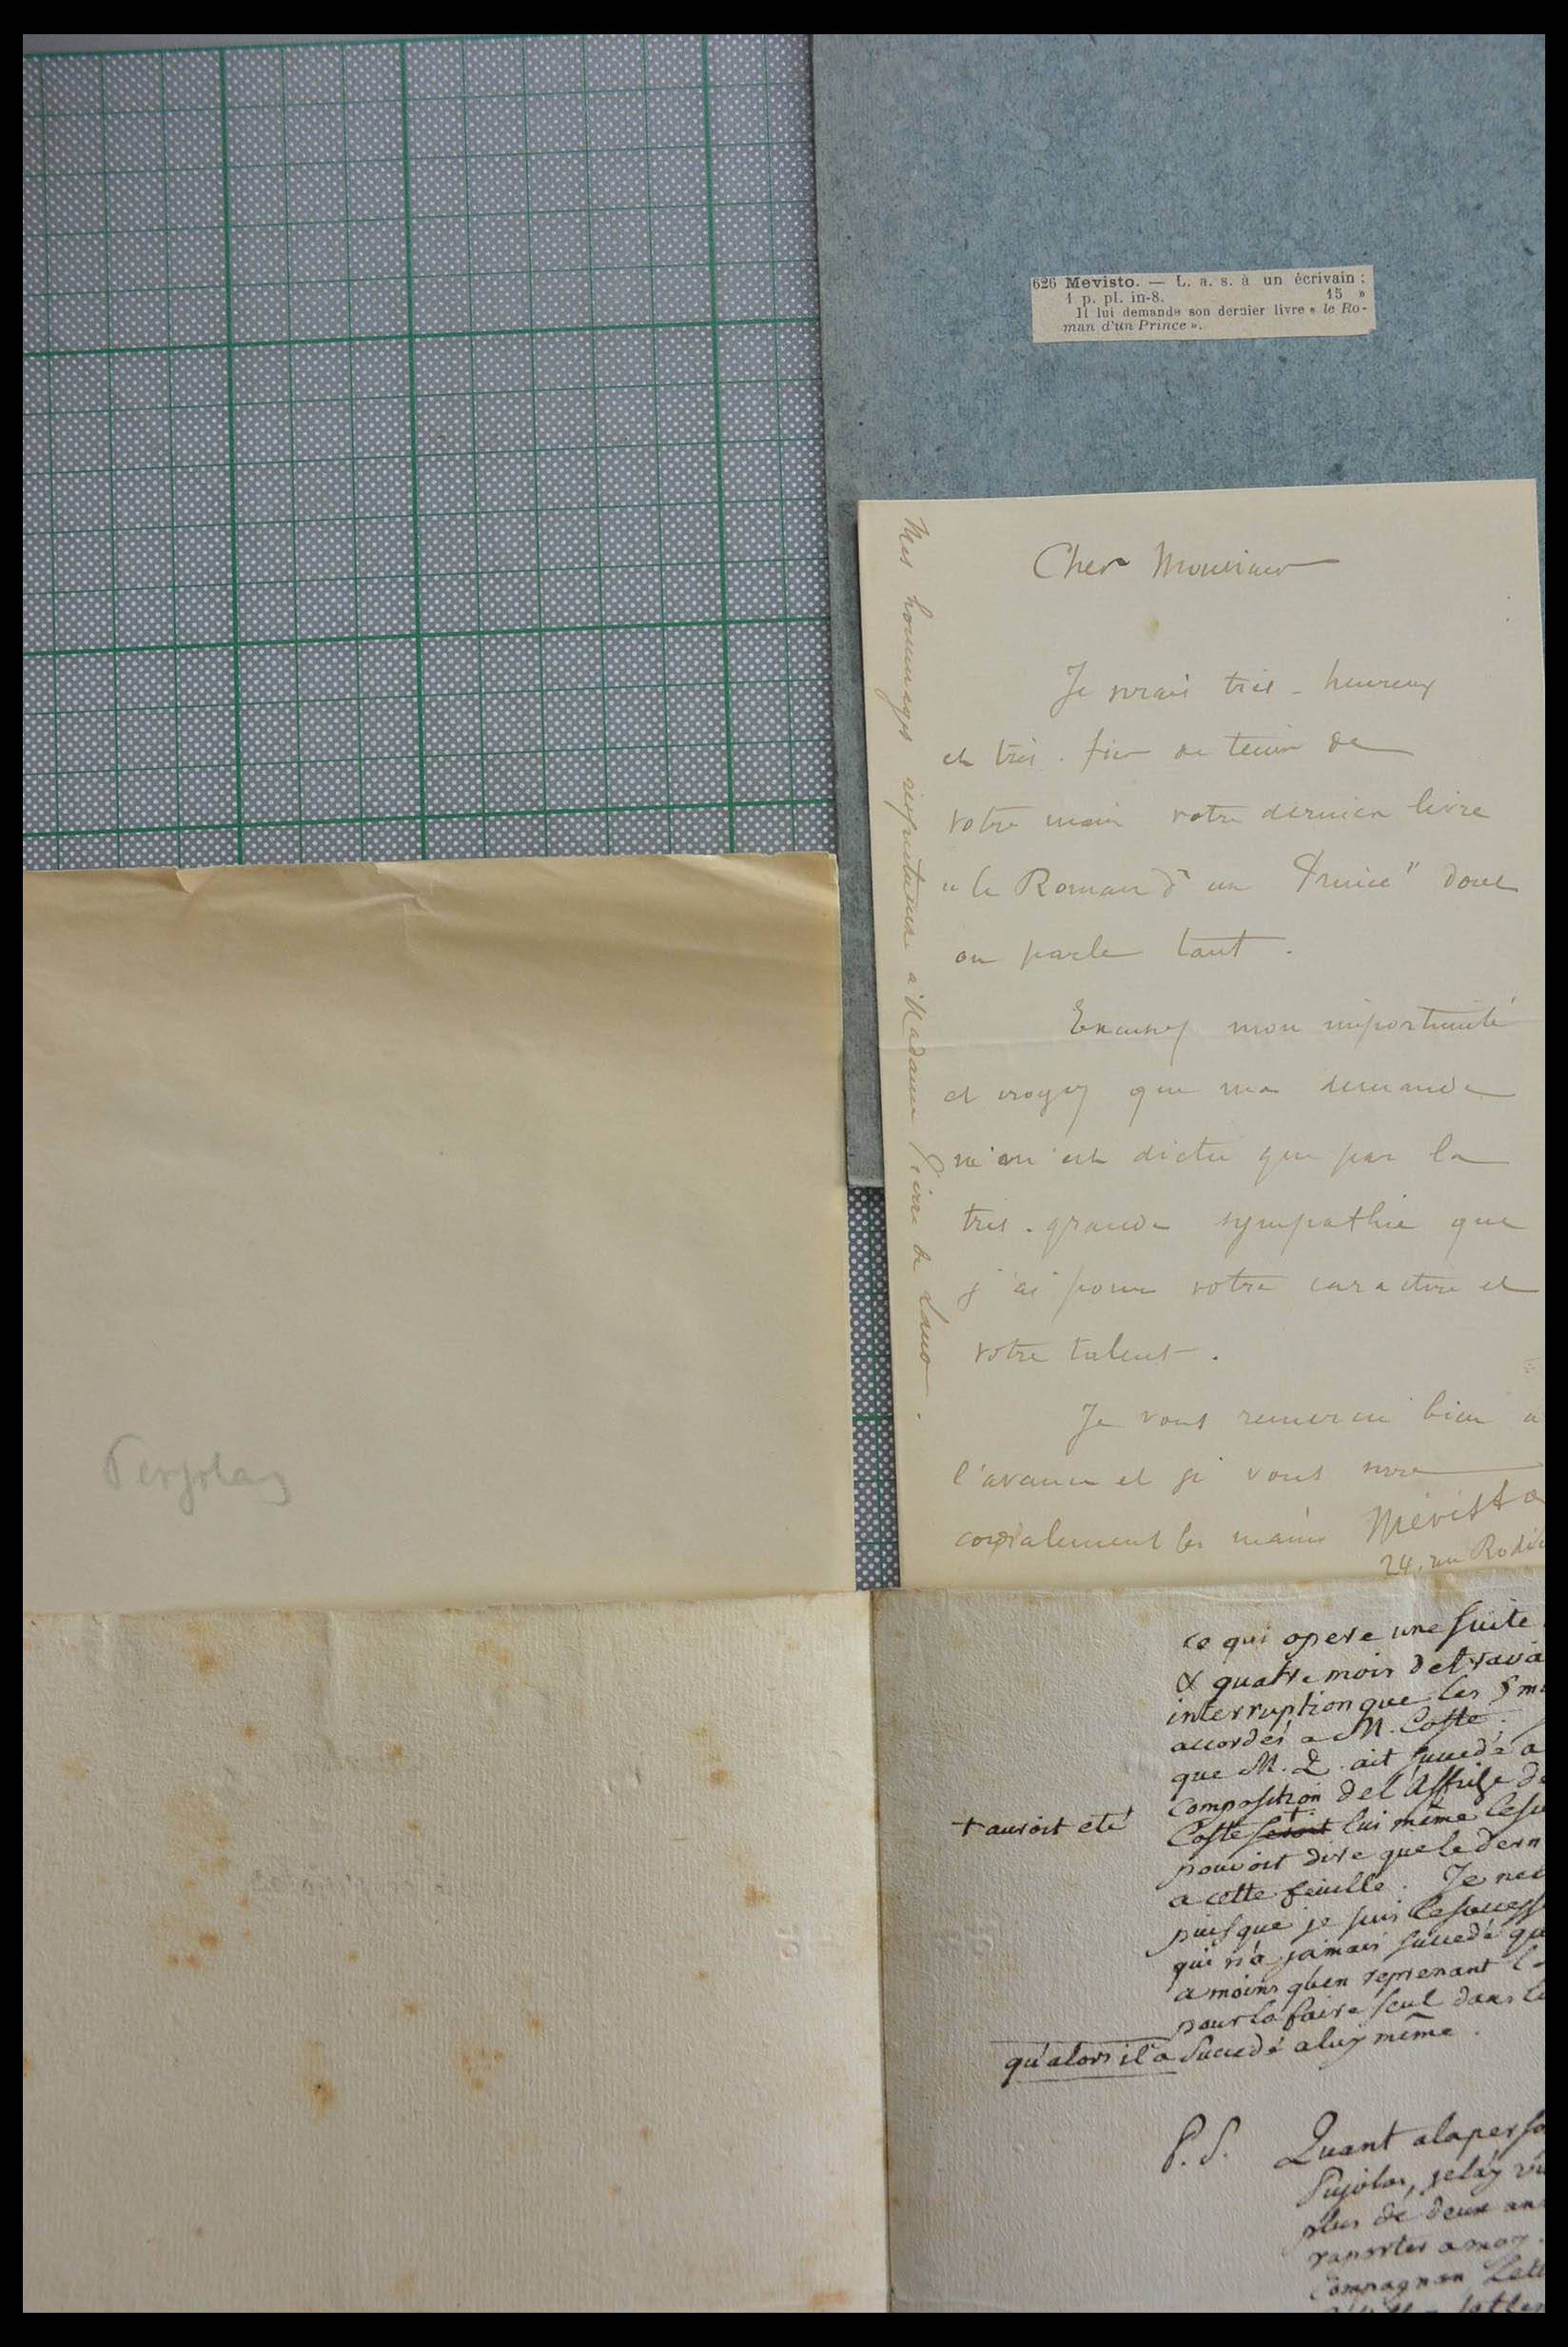 626 Mevisto. — L. a. s. à un écrivain ;
1 p. pl. in-8. 15 »
Il lui demande son dernier livre « le Ro-
man d'un Prince ».
Cher Monsieur
Je serais très - heureux
et très . fier de tenir de
votre main votre dernier livre
"le Roman d'un Prince" dont
on parle tant .
Excusez mon importunité
et croyez que ma demande
ne m'est dictée que par la
très . grande sympathie que
j'ai pour votre caractère et
votre talent .
Je vous remercie bien à
l'avance et je vous serre
cordialement les mains Mévisto
24, rue
Mes hommages respectueux à Madame Pierre de Lano .
ce qui opere une suite
& quatre mois de trava
interruption que les 5 m
accordés a M. Coste.
que M. Q. ait succedé a
composition de l'Affiche de
+ auroit eté
Coste seroit + lui même le su
pouvoit dire que le dern
a cette feuille. Je ne
puisque je suis le success
qui n'a jamais succedé qu
a moins qu'en reprenant l
pour la faire seul dans le
qu'alors il a succedé a luy même .
P. S. Quant a la perso
Pujolas, je l'ay vu
plus de deux an
raporter a moy
Compagnon Lett